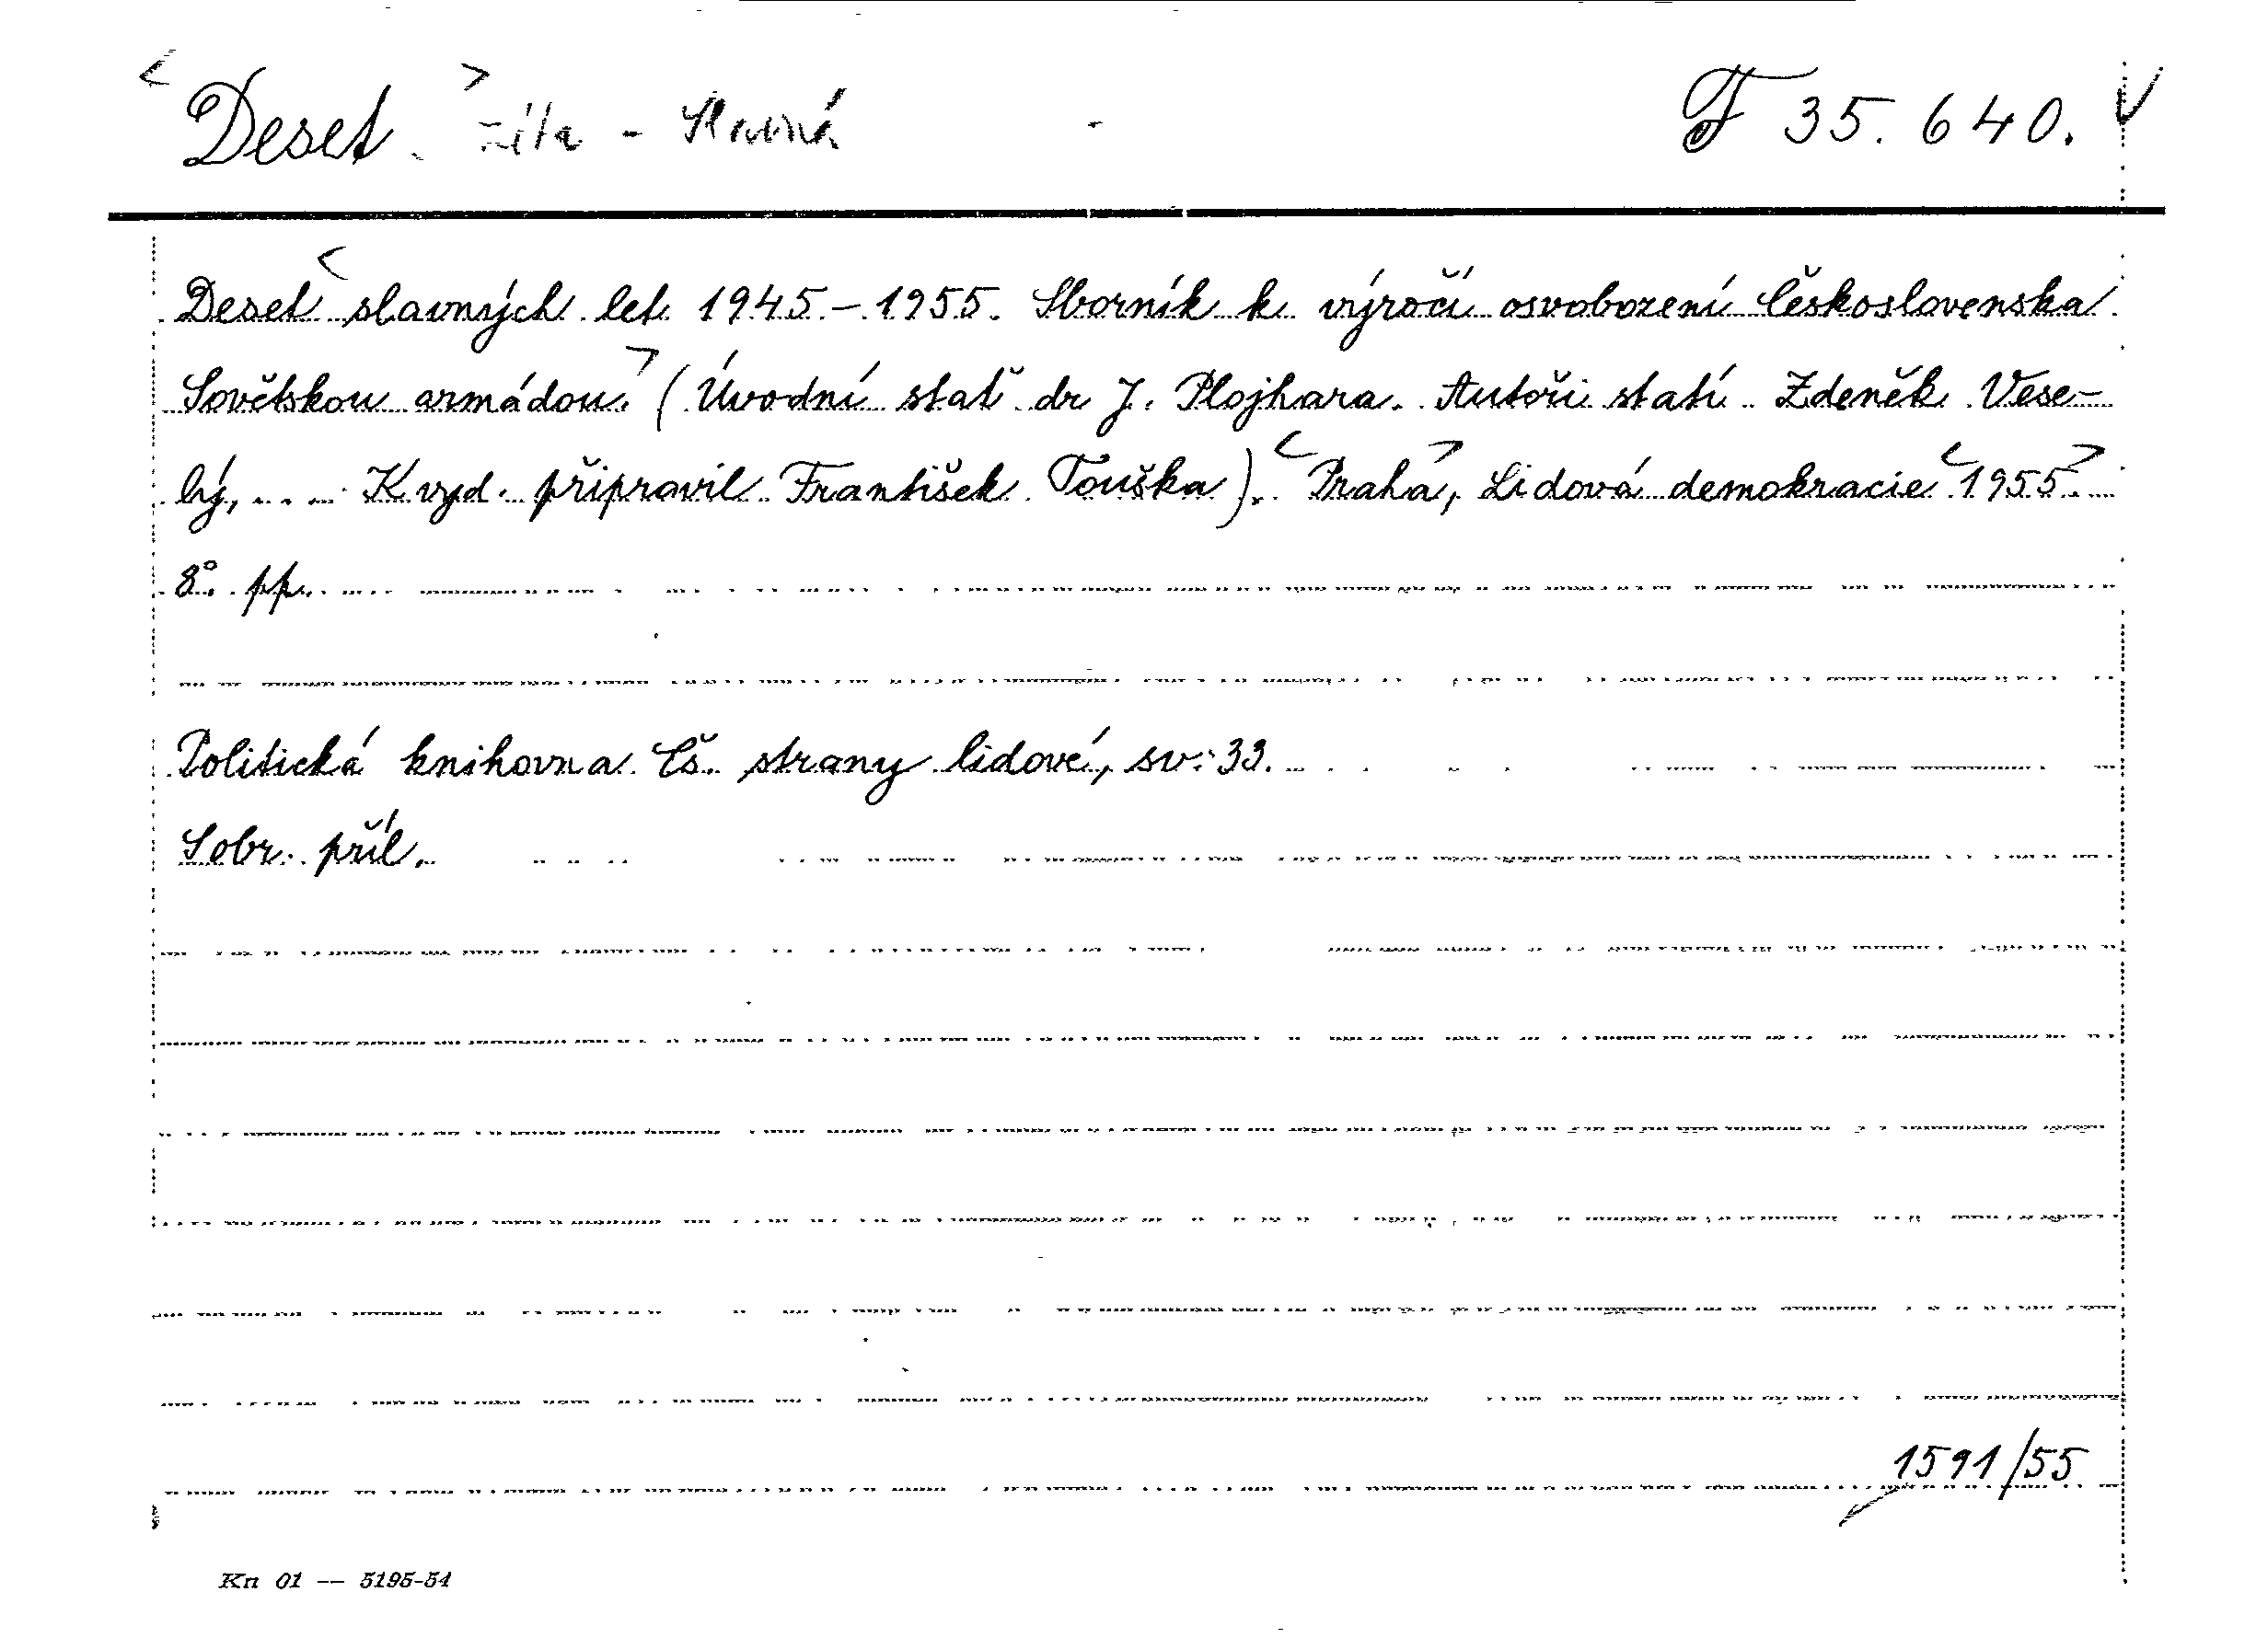 <Deset.> léta - slavná F 35.640. V
Deset <slavných let 1945-1955. Sborník k výročí osvobození Československa
Sovětskou armádou.> (Úvodní stať dr J. Plojhara. Autoři statí Zdeněk Vese-
lý,... K vyd. připravil František Touška). <Praha>, Lidová demokracie <1955.>
8°. pp.
Politická knihovna Čs. strany lidové, sv. 33.
Sobr. příl.
1591/55
Kn 01 — 5195-54